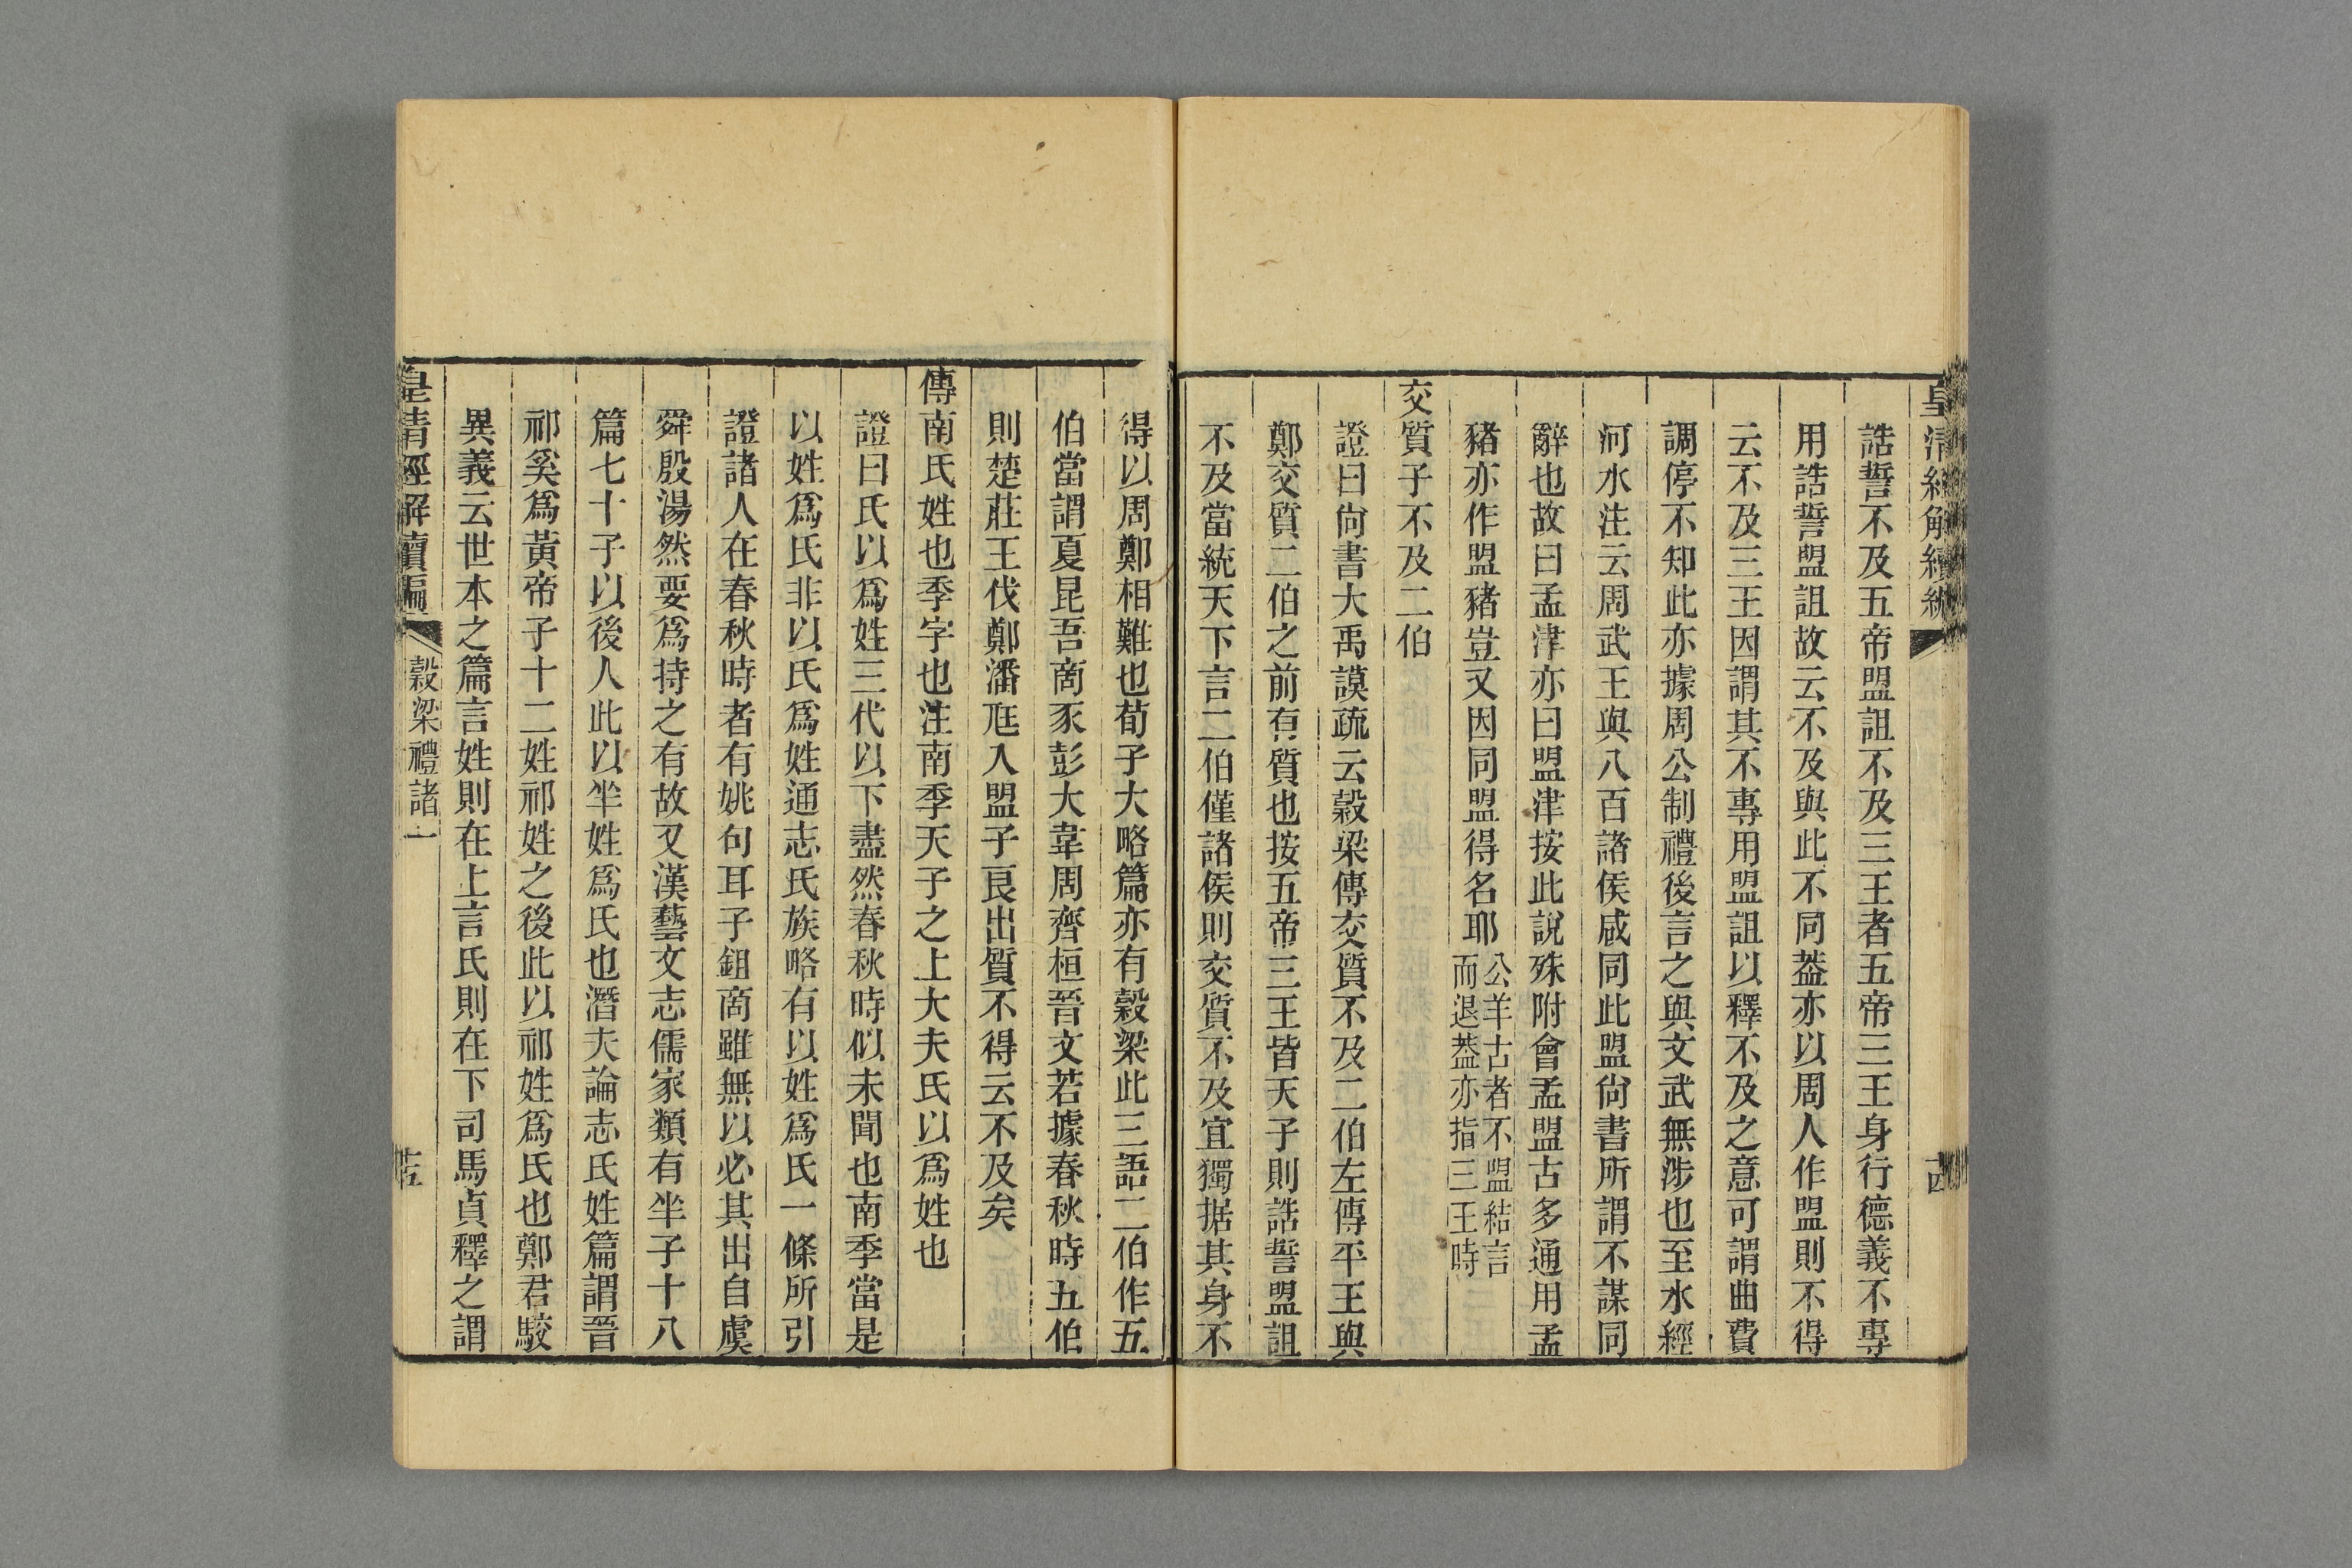 皇清經解續編
誥誓不及五帝盟詛不及三王者五帝三王身行德義不專
用誥誓盟詛故云不及與此不同葢亦以周人作盟則不得
云不及三王因謂其不專用盟詛以釋不及之意可謂曲費
調停不知此亦據周公制禮後言之與文武無涉也至水經
河水注云周武王與八百諸侯咸同此盟尙書所謂不謀同
辭也故曰孟津亦曰盟津按此說殊附會孟盟古多通用孟
豬亦作盟豬豈又因同盟得名耶公羊古者不盟結言
而退葢亦指三王時
交質子不及二伯
證曰尙書大禹謨疏云穀梁傳交質不及二伯左傳平王與
鄭交質二伯之前有質也按五帝三王皆天子則誥誓盟詛
不及當統天下言二伯僅諸侯則交質不及宜獨据其身不
得以周鄭相難也荀子大略篇亦有穀梁此三語二伯作五
伯當謂夏昆吾商豕彭大韋周齊桓晉文若據春秋時五伯
則楚莊王伐鄭潘尫入盟子良出質不得云不及矣
傳南氏姓也季字也注南季天子之上大夫氏以爲姓也
證曰氏以爲姓三代以下盡然春秋時似未聞也南季當是
以姓爲氏非以氏爲姓通志氏族略有以姓爲氏一條所引
證諸人在春秋時者有姚句耳子鉏商雖無以必其出自虞
舜殷湯然要爲持之有故又漢藝文志儒家類有羋子十八
篇七十子以後人此以羋姓爲氏也潛夫論志氏姓篇謂晉
祁奚爲黃帝子十二姓祁姓之後此以祁姓爲氏也鄭君駮
異義云世本之篇言姓則在上言氏則在下司馬貞釋之謂
皇淸經解續編 穀梁禮證一 十五